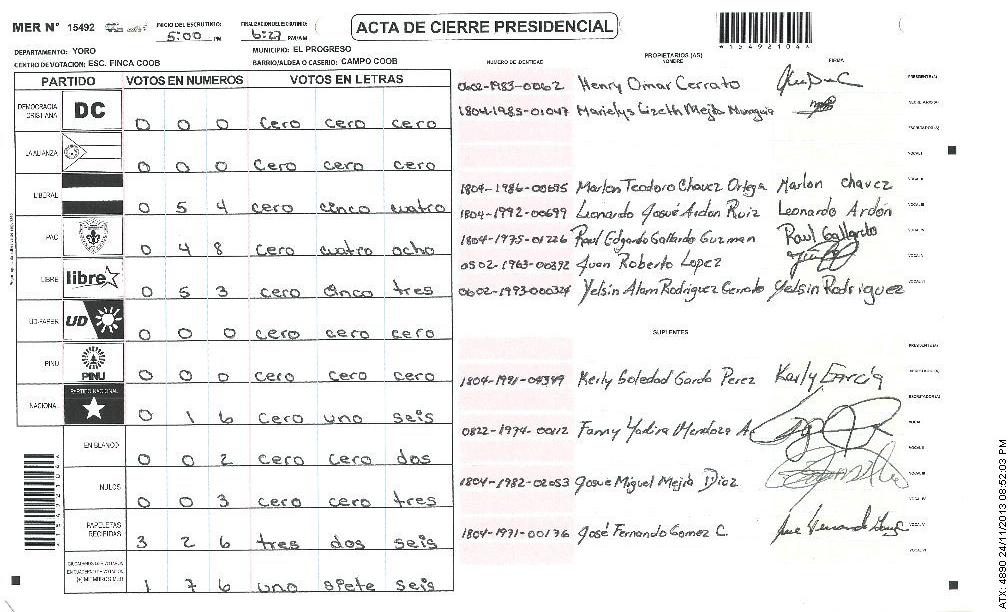 MER N° 15492
INICIO DEL ESCRUTINIO: 5:00 PM
FINALIZACION DEL ESCRUTINIO: 6:27 PM/AM
ACTA DE CIERRE PRESIDENCIAL
*15492104*
DEPARTAMENTO: YORO
MUNICIPIO: EL PROGRESO
CENTRO DE VOTACION: ESC. FINCA COOB
BARRIO/ALDEA O CASERIO: CAMPO COOB
PARTIDO VOTOS EN NUMEROS VOTOS EN LETRAS
DEMOCRACIA CRISTIANA DC 0 0 0 cero cero cero
LA ALIANZA 0 0 0 cero cero cero
LIBERAL 0 5 4 cero cinco cuatro
PAC 0 4 8 cero cuatro ocho
LIBRE libre 0 5 3 cero cinco tres
UD-FAPER UD 0 0 0 cero cero cero
PINU PINU 0 0 0 cero cero cero
NACIONAL PARTIDO NACIONAL 0 1 6 cero uno seis
EN BLANCO 0 0 2 cero cero dos
NULOS 0 0 3 cero cero tres
PAPELETAS RECIBIDAS 3 2 6 tres dos seis
(+) MIEMBROS MER 1 7 6 uno siete seis
NUMERO DE IDENTIDAD
PROPIETARIOS (AS)
NOMBRE
FIRMA
0602-1983-00062 Henry Omar Cerrato PRESIDENTE(A)
1804-1985-01047 Marielys Lizeth Mejia Munguia SECRETARIO(A)
ESCRUTADOR(A)
VOCAL I
1804-1986-00695 Marlon Teodoro Chavez Ortega Marlon chavez VOCAL II
1804-1992-00699 Leonardo Josué Ardon Ruiz Leonardo Ardón VOCAL III
1804-1975-01226 Raul Edgardo Gallardo Guzman Raul Gallardo VOCAL IV
0502-1963-00392 Juan Roberto Lopez VOCAL V
0602-1993-000324 Yelsin Alam Rodriguez Cerrato Yelsin Rodriguez VOCAL VI
SUPLENTES
PRESIDENTE(A)
1804-1991-04399 Kerly Soledad Garcia Perez Kerly García SECRETARIO(A)
ESCRUTADOR(A)
0822-1974-00112 Fanny Yadira Mendoza A. VOCAL I
VOCAL II
1804-1982-02053 Josue Miguel Mejia Diaz VOCAL III
VOCAL IV
1804-1971-00176 José Fernando Gomez C. VOCAL V
VOCAL VI
ATX: 4890 24/11/2013 08:52:03 PM